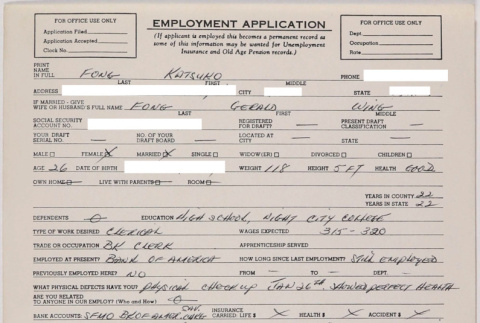 FOR OFFICE USE ONLY
Application Filed
Application Accepted
Clock No.
EMPLOYMENT APPLICATION
(If applicant is employed this becomes a permanent record as
some of this information may be wanted for Unemployment
Insurance and Old Age Pension records.)
FOR OFFICE USE ONLY
Dept.
Occupation
Rate
PRINT
NAME
IN FULL FONG KATSUKO PHONE
LAST FIRST MIDDLE
ADDRESS CITY STATE
IF MARRIED - GIVE
WIFE OR HUSBAND'S FULL NAME FONG GERALD WING
LAST FIRST MIDDLE
SOCIAL SECURITY
ACCOUNT NO. REGISTERED
FOR DRAFT? — PRESENT DRAFT
CLASSIFICATION —
YOUR DRAFT
SERIAL NO. — NO. OF YOUR
DRAFT BOARD — LOCATION — STATE —
MALE FEMALE X MARRIED X SINGLE WIDOW(ER) DIVORCED CHILDREN
AGE 26 DATE OF BIRTH WEIGHT 118 HEIGHT 5 FT HEALTH GOOD
OWN HOME LIVE WITH PARENTS ROOM
YEARS IN COUNTY 22
YEARS IN STATE 22
DEPENDENTS 0 EDUCATION HIGH SCHOOL, NIGHT CITY COLLEGE
TYPE OF WORK DESIRED CLERICAL WAGES EXPECTED 315 - 320
TRADE OR OCCUPATION BK CLERK APPRENTICESHIP SERVED
EMPLOYED AT PRESENT? BANK OF AMERICA HOW LONG SINCE LAST EMPLOYMENT? STILL EMPLOYED
PREVIOUSLY EMPLOYED HERE? NO FROM — TO — DEPT. —
WHAT PHYSICAL DEFECTS HAVE YOU? PHYSICAL CHECKUP JAN 26TH SHOWED PERFECT HEALTH
ARE YOU RELATED
TO ANYONE IN OUR EMPLOY? (Who and How) 0
BANK ACCOUNTS: SFMO BK OF AMER. SAV. INSURANCE
CARRIED: LIFE $ X HEALTH $ X ACCIDENT $ X